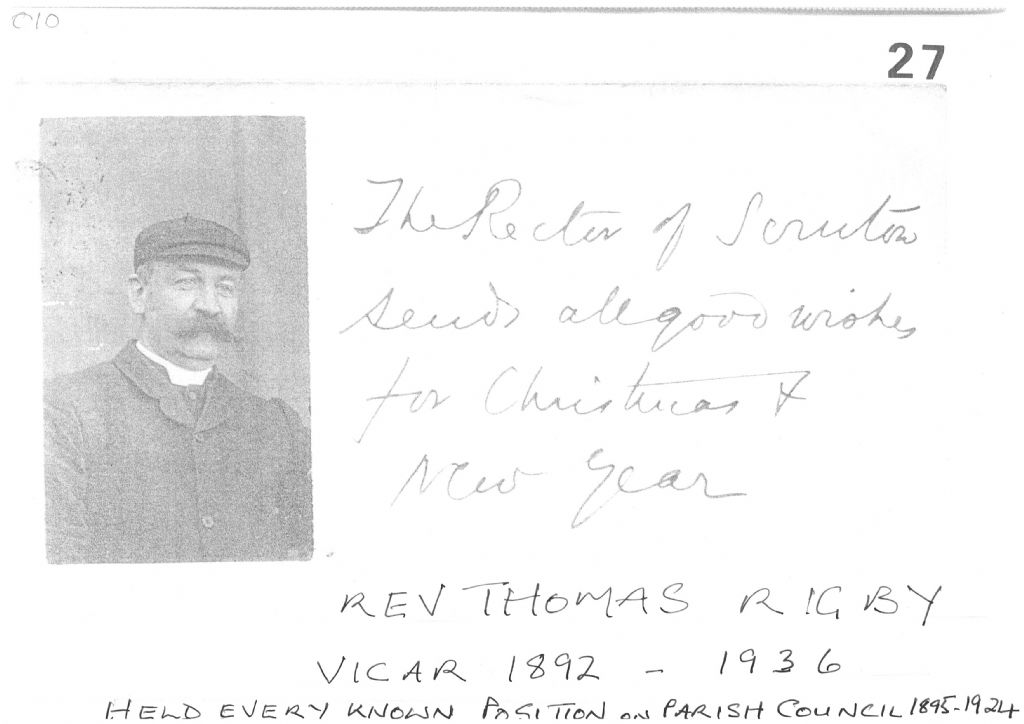 C10
27
The Rector of Scruton
sends all good wishes
for Christmas &
New Year
REV THOMAS RIGBY
VICAR 1892 - 1936
HELD EVERY KNOWN POSITION ON PARISH COUNCIL 1895-1924